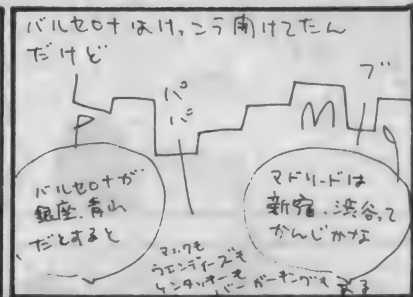 バルセロナはけっこう開けてたん
だけど
パパ
ブー
M
バルセロナが
銀座、青山
だとすると
マドリードは
新宿、渋谷って
かんじかな
マックも
ウエンディーズも
ケンタッキーも
バーガーキングもある